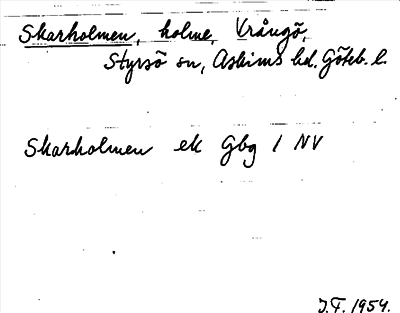 Skarholmen, holme, Vrångö,
Styrsö sn, Askims hd. Göteb. l.
Skarholmen ek Gbg 1 NV
J.F. 1954.